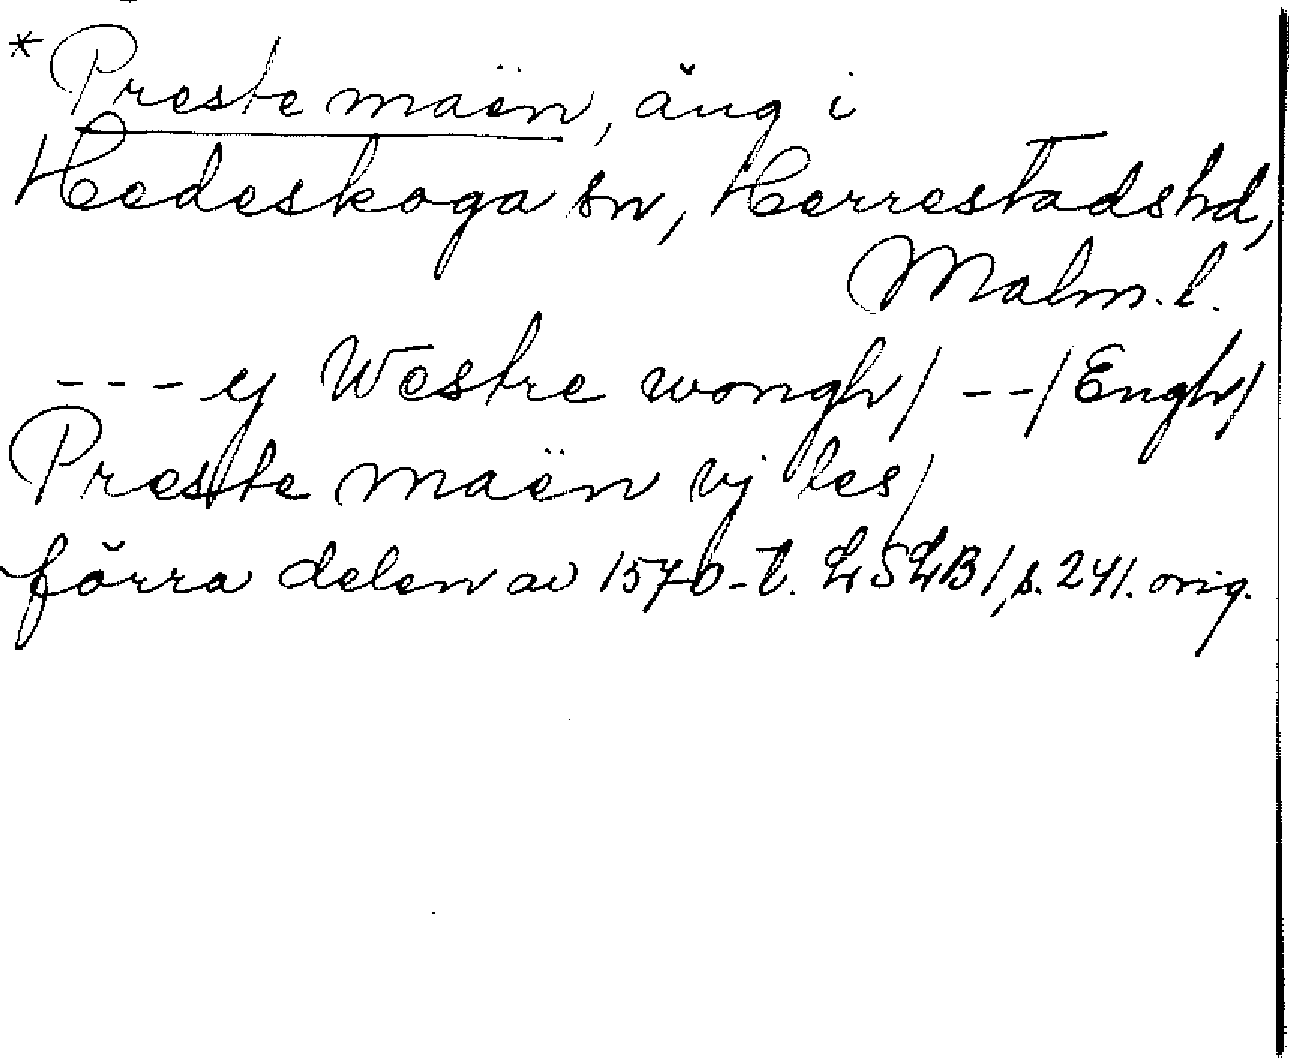 * Preste maën, äng i
Hedeskoga sn, Herrestads hd,
Malm. l.
--- y Westre wongh / -- / Engh /
Preste maën vj les /
förra delen av 1570-t. LSLB 1, s. 241. orig.